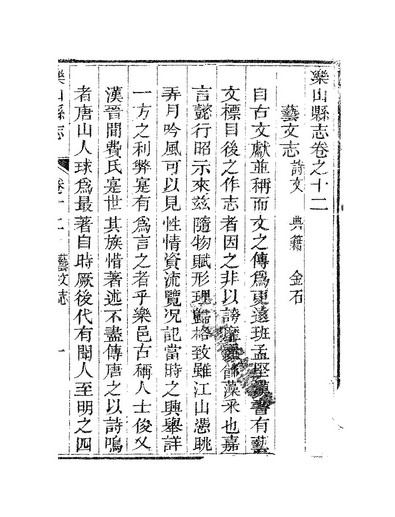 樂山縣志卷之十二
藝文志 詩文 典籍 金石
自古文獻並稱而文之傳爲更遠班孟堅漢書有藝
文標目後之作志者因之非以誇靡麗飾藻釆也嘉
言懿行昭示來茲隨物賦形理歸格致雖江山憑眺
弄月吟風可以見性情資流覽况記當時之興舉詳
一方之利弊寔有爲言之者乎樂邑古稱人士俊乂
漢晉間費氏寔世其族惜著述不盡傳唐之以詩鳴
者唐山人球爲最著自時厥後代有聞人至明之四
樂山縣志
卷十二
藝文志
一